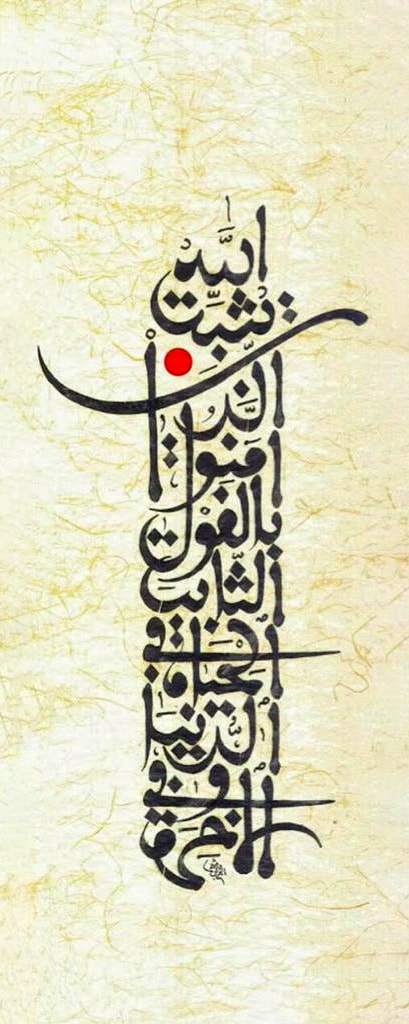 يثبت الله
الذين
آمنوا
بالقول
الثابت
في الحياة
الدنيا
وفي
الآخرة